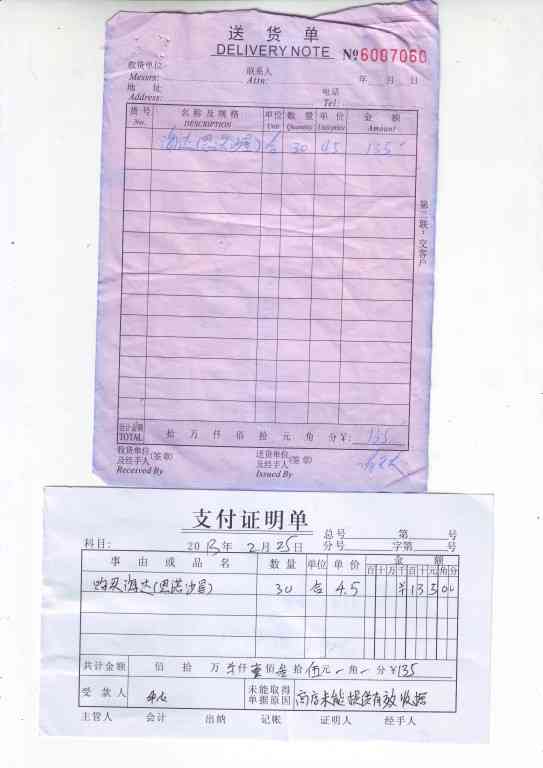 送 货 单
DELIVERY NOTE №6007060
收货单位 联系人
Messrs: Attn: 年 月 日
地 址 电话
Address: Tel:
货号 名称及规格 单位 数量 单价 金额
No. DESCRIPTION Unit Quantity Unit price Amount
海达(恩诺沙星) 合 30 4.5 135
第二联:交客户
合计金额
TOTAL 拾 万 仟 佰 拾 元 角 分¥: 135
收货单位 送货单位
及经手人(签章) 及经手人(签章)
Received By Issued By
支付证明单
总号 第 号
科目: 2013年 2月25日 分号 字第 号
事 由 或 品 名 数量 单位 单价 金 额
百十万千百十元角分
购买海达(恩诺沙星) 30 合 4.5 ¥13500
共计金额 佰 拾 万 仟壹佰叁拾伍元 角 分¥135
受款人 未能取得
单据原因 商店未能提供有效收据
主管人 会计 出纳 记帐 证明人 经手人